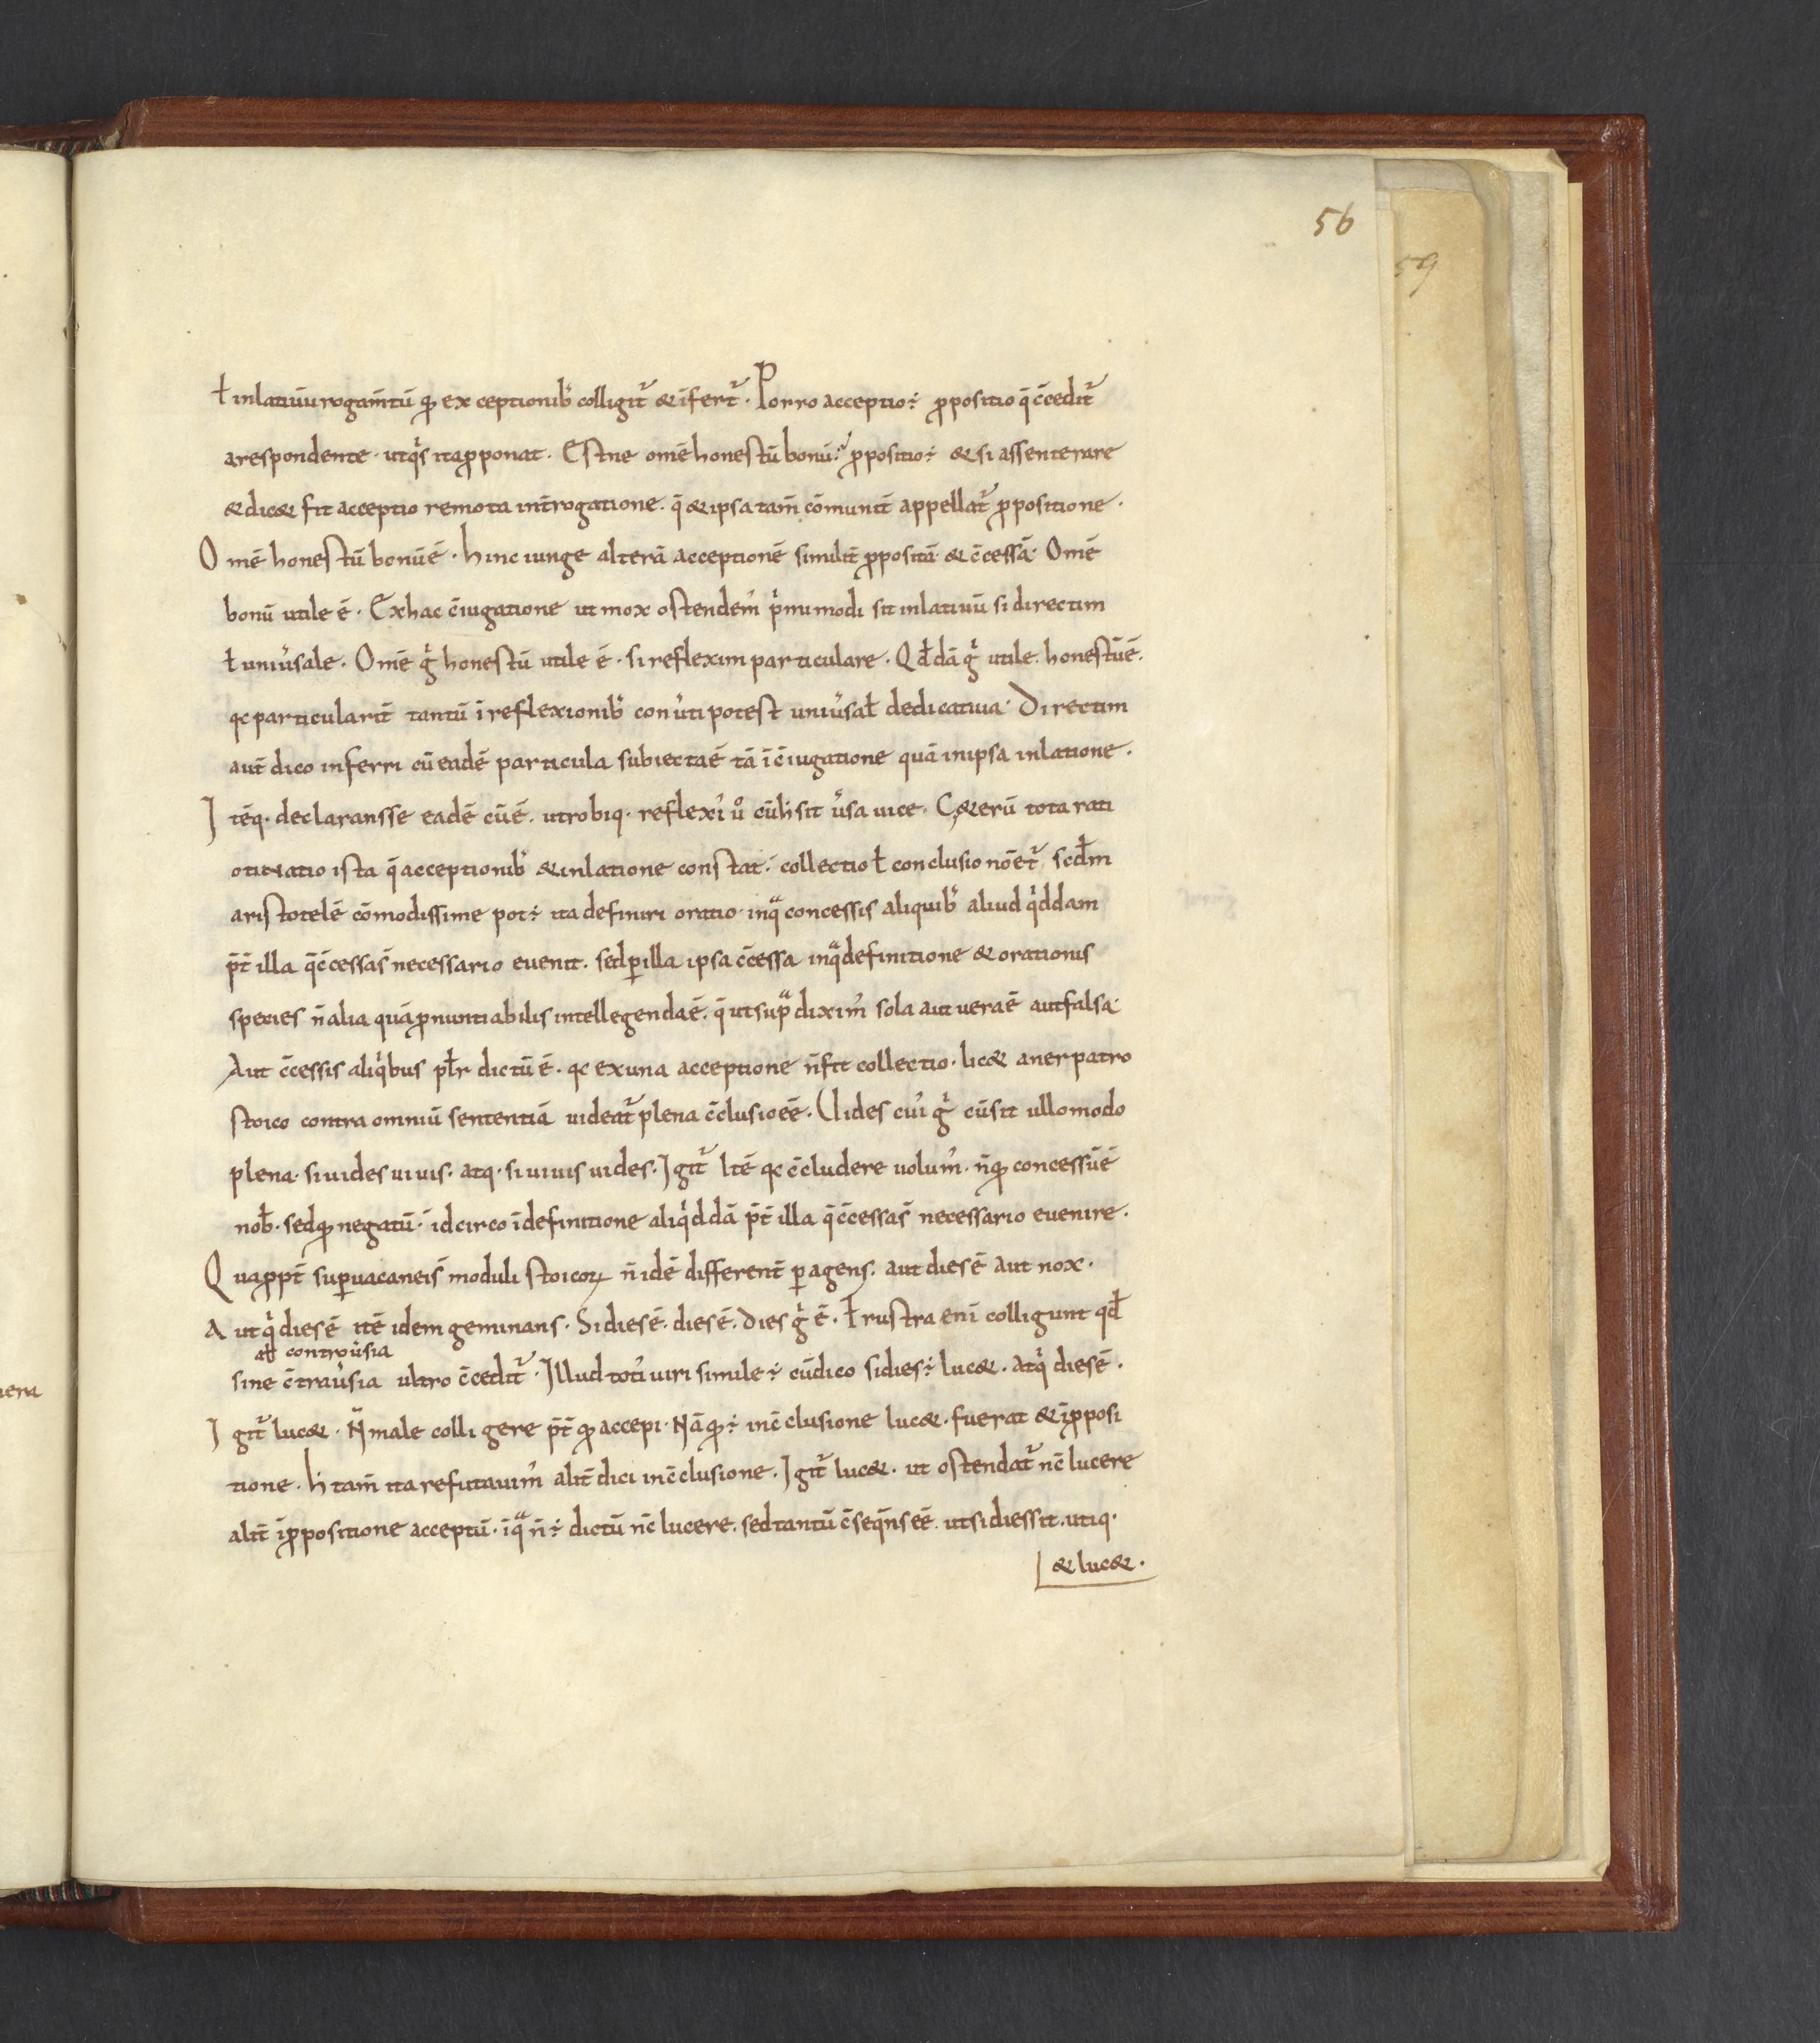 56
59
ł inlatiuū rogam̄tū ꝙ ex ceptionib; colligit᷑ & īfert᷑. Porro acceptio ÷ ꝓpositio q̄ c̄cedit᷑
arespondente. utqͥs itaꝓponat. Estne omē honestū bonū. ꝓpositio ÷ & si assenterare
& dic& fit acceptio remota int̄rogatione. q̄ & ipsa tam̄ cōmunit̄ appellat᷑ ꝓpositione.
O mē honestū bonū ē. hinc iunge alterā acceptionē similit̄ ꝓpositā & c̄cessā. Omē
bonū utile ē. Exhac c̄iugatione ut mox ostendem᾽ pͥmi modi fit inlatiuū si directim
ł uniu᾽sale. Omē gͥ honestū utile ē. si reflexim particulare. Qđdā gͥ utile. honestū ē.
qc particularit̄ tantū ī reflexionib; conu᾽ti potest uniu᾽sał dedicatiua. Directim
aut̄ dico inferri cū eadē particula subiecta ē tā ī c̄iugatione quā inipsa inlatione.
I tēq. declaransse eadē cū ē. utrobiq. reflexi᾽ uͦ cū h̄ fit u᾽sa uice. C&erū tota rati
otinatio ista q̄ acceptionib; & inlatione constat. collectio ł conclusio nōet᷑ scđm
aristotelē cōmodissime pot ÷ ita definiri oratio. inqͣ concessis aliquib; aliud qͥddam
p̄t̄ illa q̄ c̄cessa s̄ necessario euenit. sed ꝑ illa ipsa c̄cessa inqͣ definitione & orationis
species n̄ alia quā ꝓnuntiabilis intellegenda ē. q̄ ut supͣ dixim᾽ sola aut uera ē aut falsa.
Aut c̄cessis aliqͥbus płr dictū ē. qc exuna acceptione n̄ fit collectio. lic& anerpatro
stoico contra omniū sententiā uideat᷑ plena c̄clusio eē. Uides cui᾽ gͥ cū sit ullomodo
plena. si uides uiuis. atq. si uiuis uides. Igit᷑ ltē qc c̄cludere uolum᾽. n̄ ꝙ concessū ē
nob̄. sed ꝙ negatū. idcirco ī definitione aliqͥddā p̄t̄ illa q̄ c̄cessa s̄ necessario euenire.
Q uaꝓpt̄ suꝑuacaneis̄ moduli stoicoꝝ n̄ idē different̄ ꝑ agens. aut dies ē aut nox.
A utqͥ dies ē itē idem geminans. Si dies ē. dies ē. Dies gͥ ē. Frustra enī colligunt qđ
ał controu᾽sia
sine c̄trau᾽sia ultro c̄cedit᷑. Illud toti᾽ uiri simile ÷ cū dico si dies ÷ luc&. Atqͥ dies ē.
I git᷑ luc&. N̄ male colligere p̄t̄ ꝙ accepi. Nā ꝙ ÷ inc̄clusione luc&. fuerat & īꝓposi
tione. h̄ tam̄ ita refutauim᾽ alit̄ dici inc̄clusione. Igit᷑ luc&. ut ostendat᷑ nc̄ lucere
alit̄ īꝓpositione acceptū. īqͣ n̄ ÷ dictū nc̄ lucere. sed tantū c̄seq̄ns eē. ut si dies sit. utiq.
& luc&.